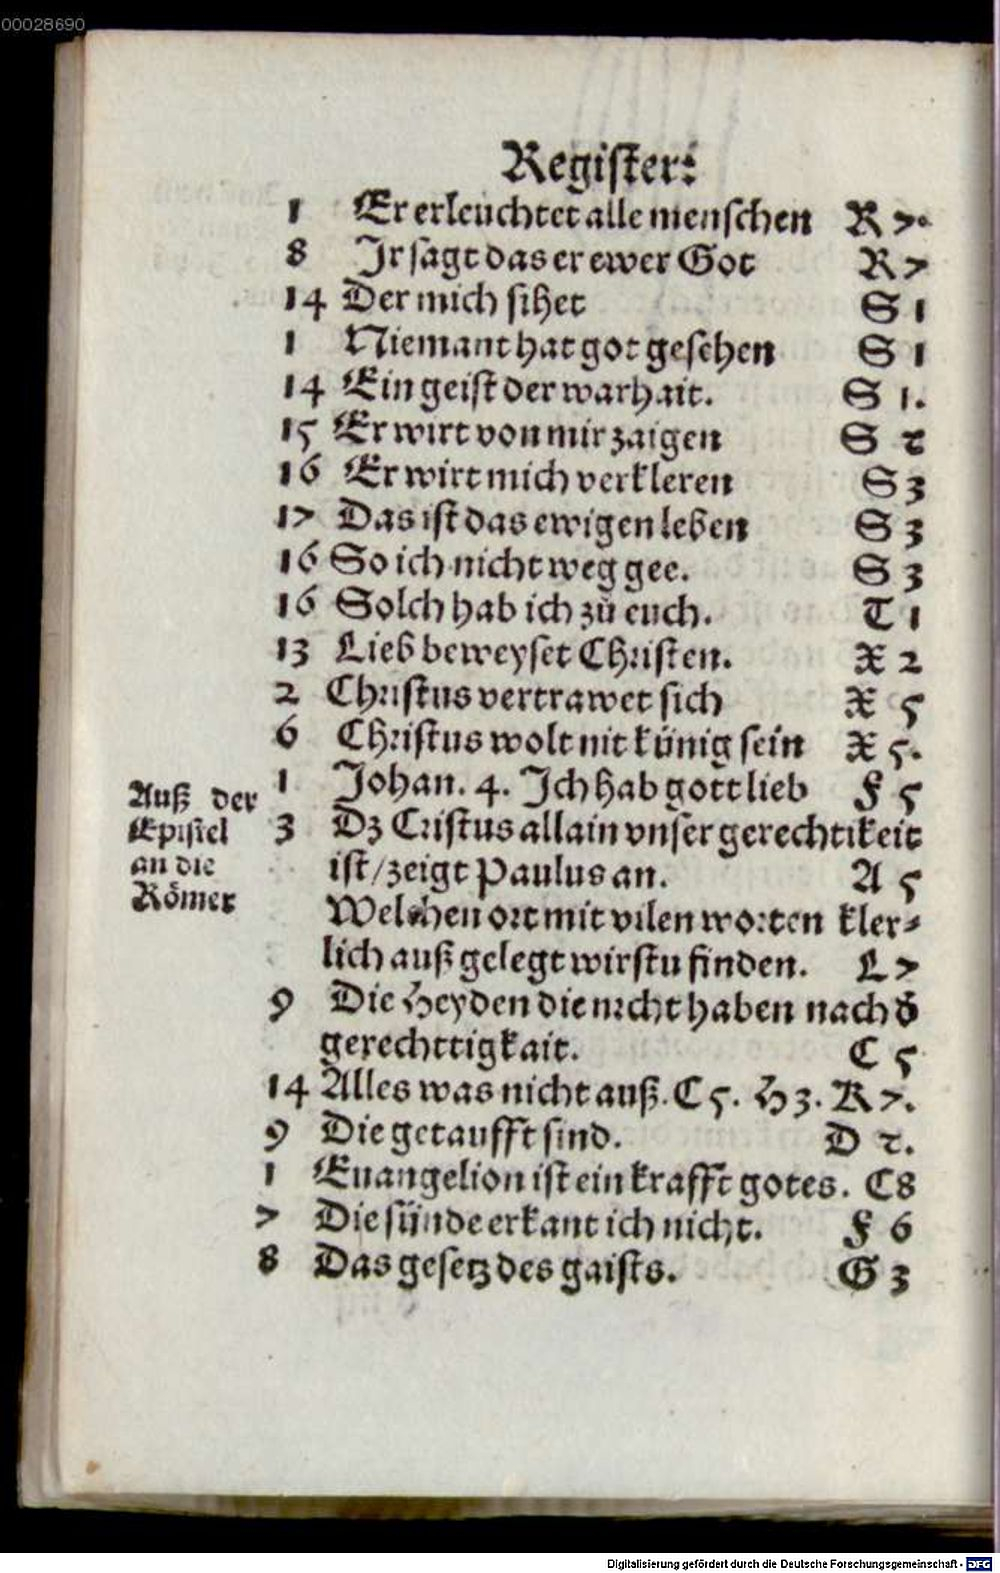 00028690
Register:
1 Er erleuchtet alle menschen R 7.
8 Jr sagt das er ewer Got R 7
14 Der mich sihet S 1
1 Niemant hat got gesehen S 1
14 Ein geist der warhait. S 1.
15 Er wirt von mir zaigen S 2
16 Er wirt mich verkleren S 3
17 Das ist das ewigen leben S 3
16 So ich nicht weg gee. S 3
16 Solch hab ich zů euch. T 1
13 Lieb beweyset Christen. X 2
2 Christus vertrawet sich X 5
6 Christus wolt nit künig sein X 5.
1 Johan. 4. Ich hab gott lieb F 5
Auß der
Epistel
an die
Römer
3 Dz Cristus allain vnser gerechtikeit
ist/zeigt Paulus an. A 5
Welchen ort mit vilen worten kler⸗
lich auß gelegt wirstu finden. L 7
9 Die Heyden die nicht haben nach d̕
gerechttigkait. C 5
14 Alles was nicht auß. C 5. H 3. K 7.
9 Die getaufft sind. D 2.
1 Euangelion ist ein krafft gotes. C8
7 Die sünde erkant ich nicht. F 6
8 Das gesetz des gaists. G 3
Digitalisierung gefördert durch die Deutsche Forschungsgemeinschaft - DFG